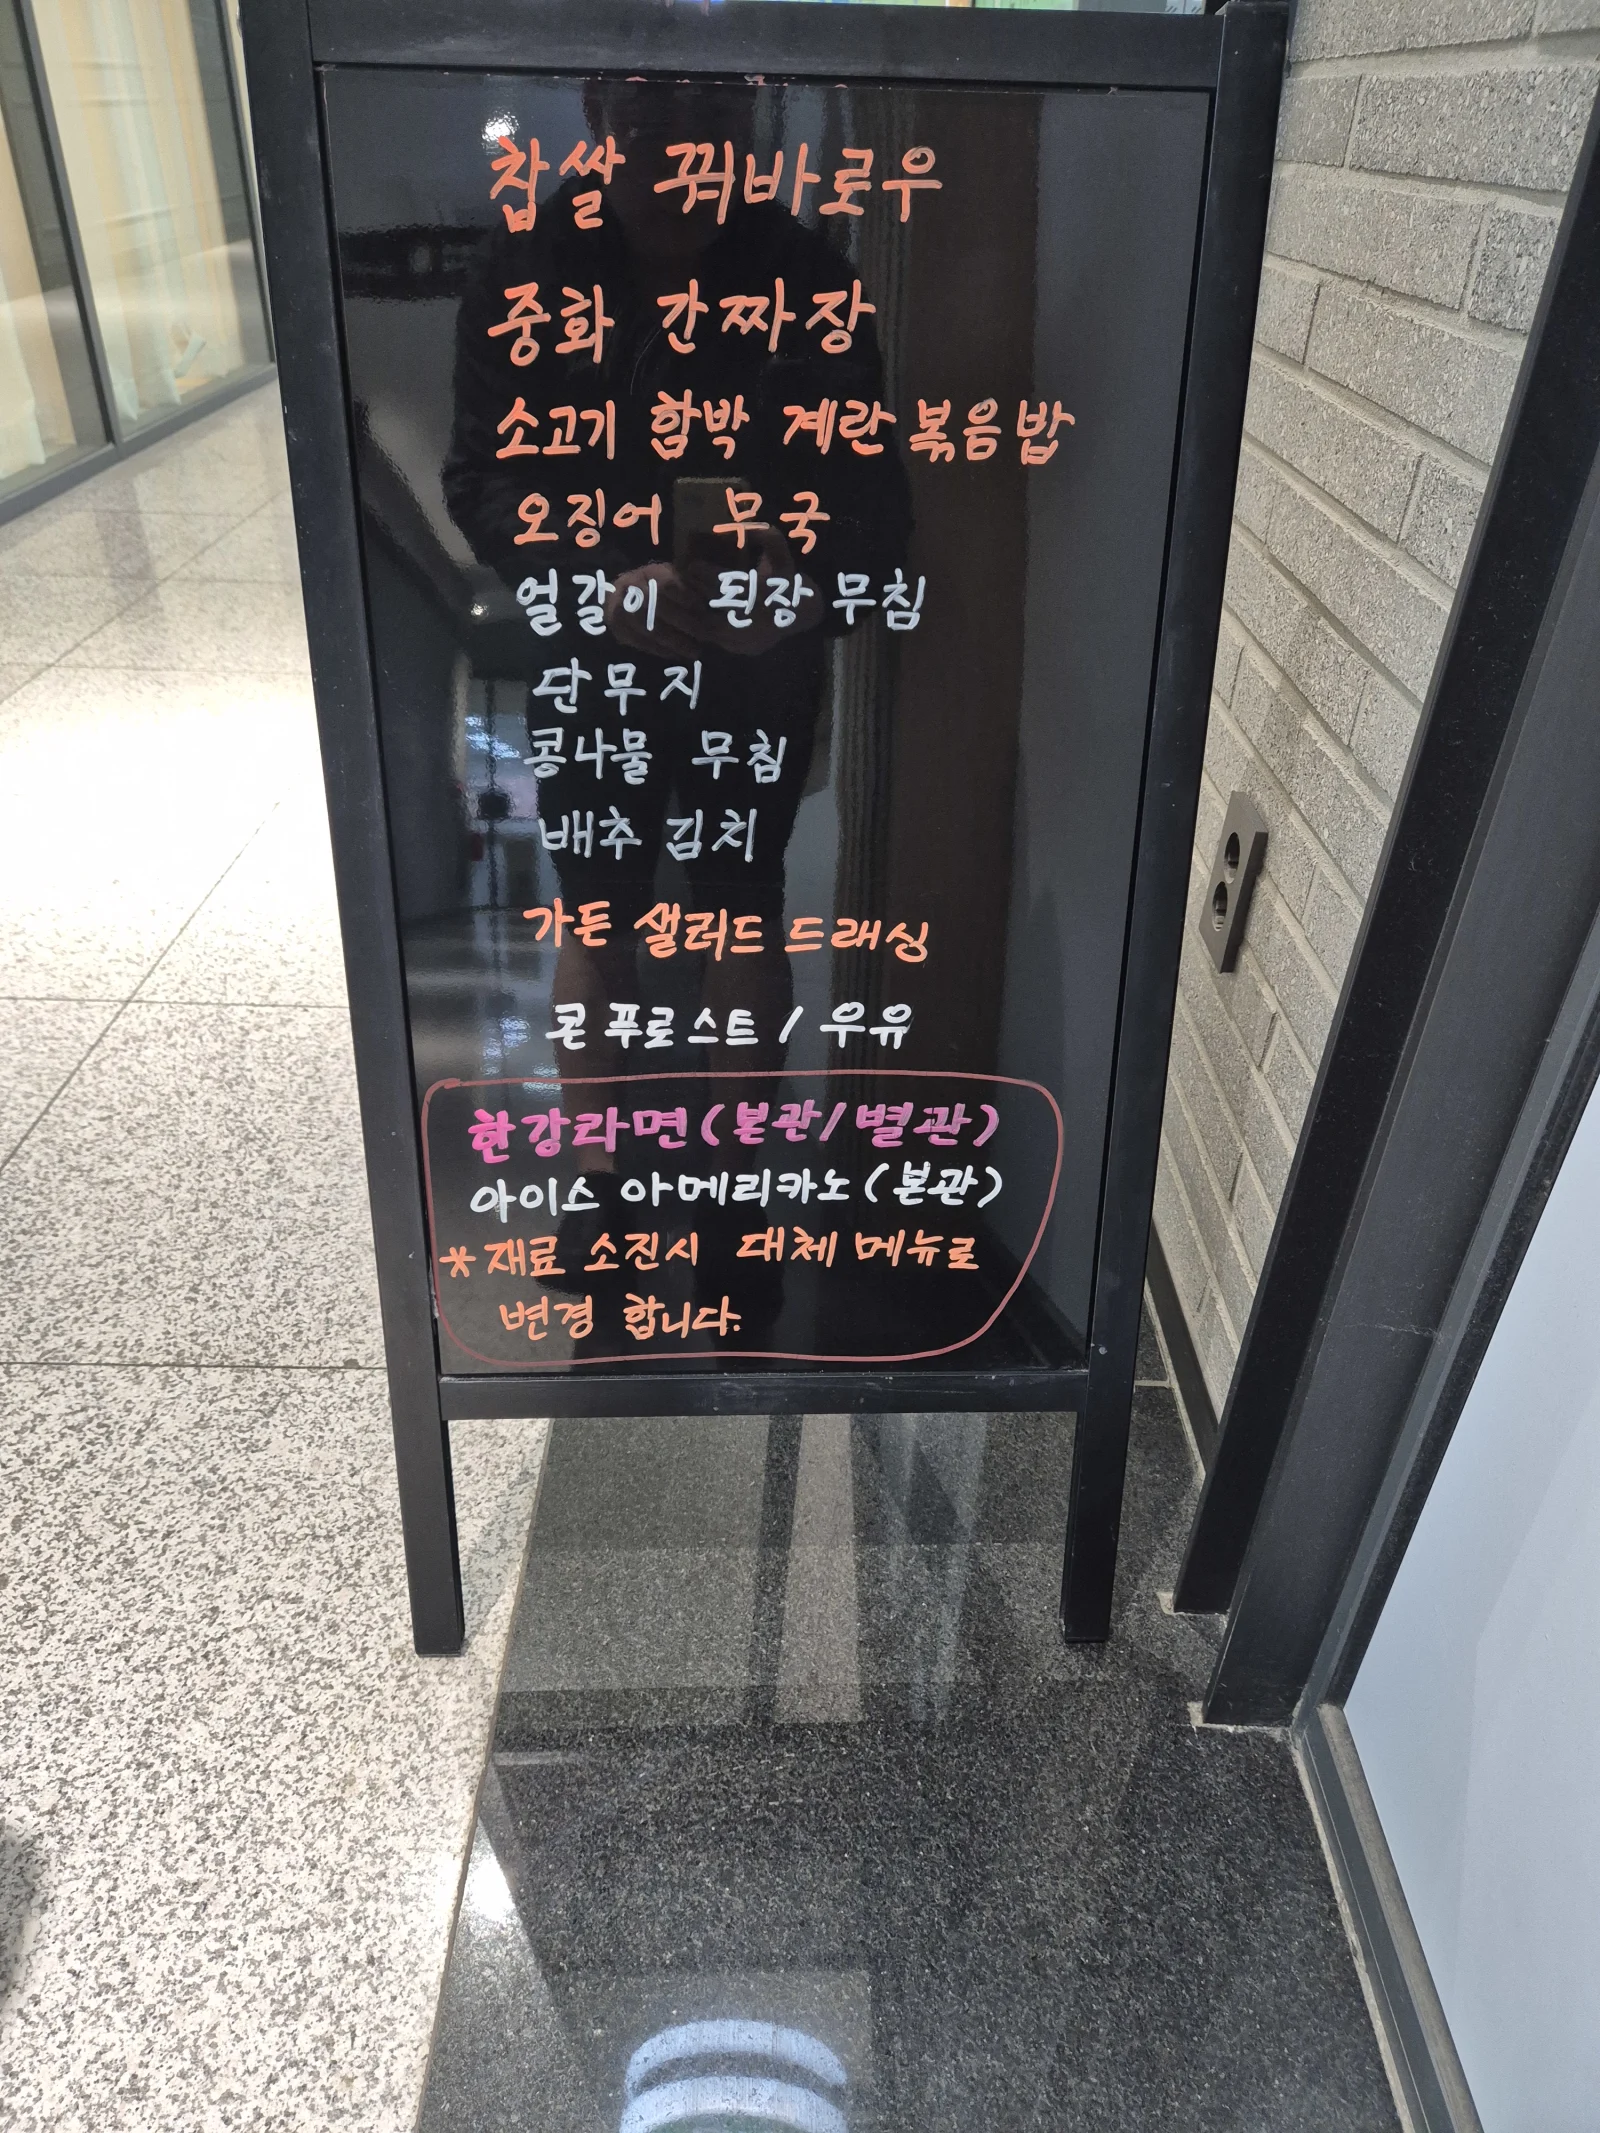 찹쌀 꿔바로우
중화 간짜장
소고기 함박 계란볶음밥
오징어 무국
얼갈이 된장무침
단무지
콩나물 무침
배추 김치
가든 샐러드 드래싱
콘푸로스트 / 우유
한강라면(본관/별관)
아이스 아메리카노(본관)
*재료 소진시 대체 메뉴로
변경 합니다.